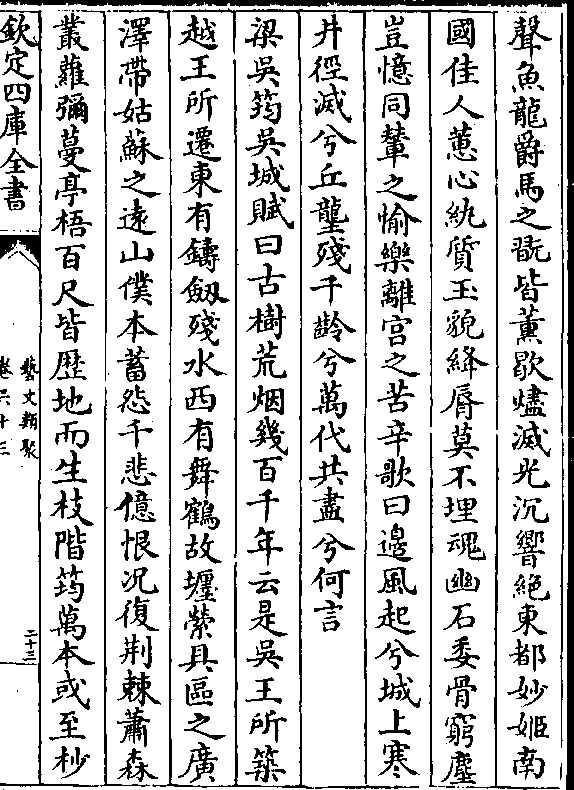 聲魚龍爵馬之翫皆薫歇燼滅光沉響絶東都妙姬南
國佳人蕙心紈質玉貌絳脣莫不埋魂幽石委骨窮塵
豈憶同轝之愉樂離宫之苦辛歌曰邊風起兮城上寒
井徑滅兮丘壟殘千齡兮萬代共盡兮何言
梁吳筠吳城賦曰古樹荒烟幾百千年云是吳王所築
越王所遷東有鑄劔殘水西有舞鶴故壥縈具區之廣
澤帶姑蘇之遠山僕本蓄怨千悲億恨况復荆棘蕭森
叢蘿彌蔓亭梧百尺皆歴地而生枝階筠萬本或至杪
欽定四庫全書
藝文類聚
卷六十三
二十三